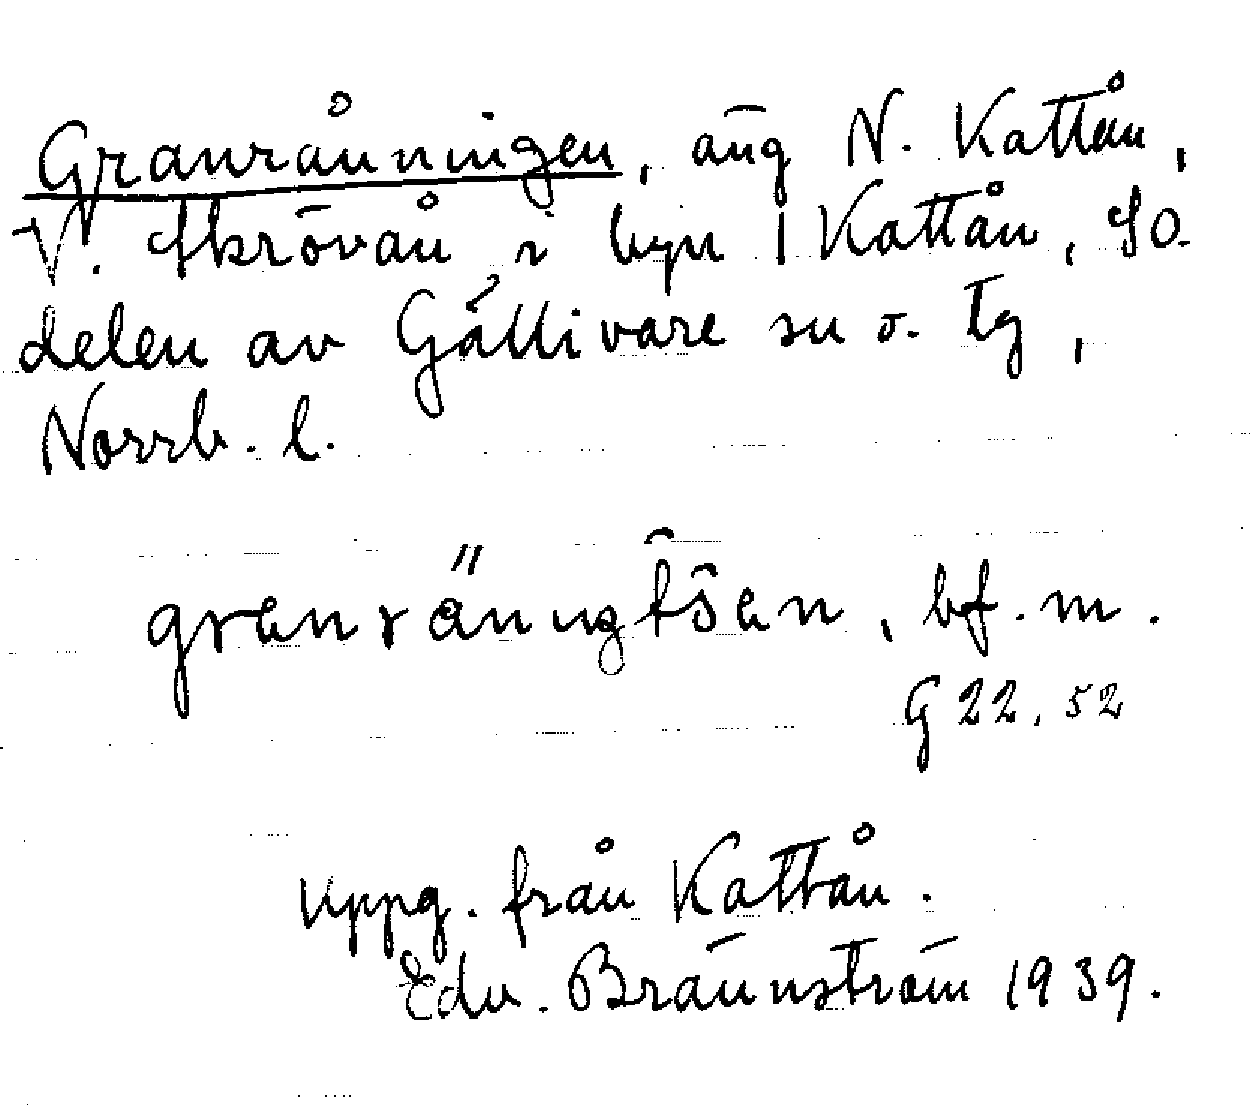 Granråningen, äng N. Kattån,
V. Skrövån i byn Kattån, SO.
delen av Gällivare sn o. tg,
Norrb. l.
bf. m.
G 22, 52
Uppg. från Kattån.
Edv. Brännström 1939.